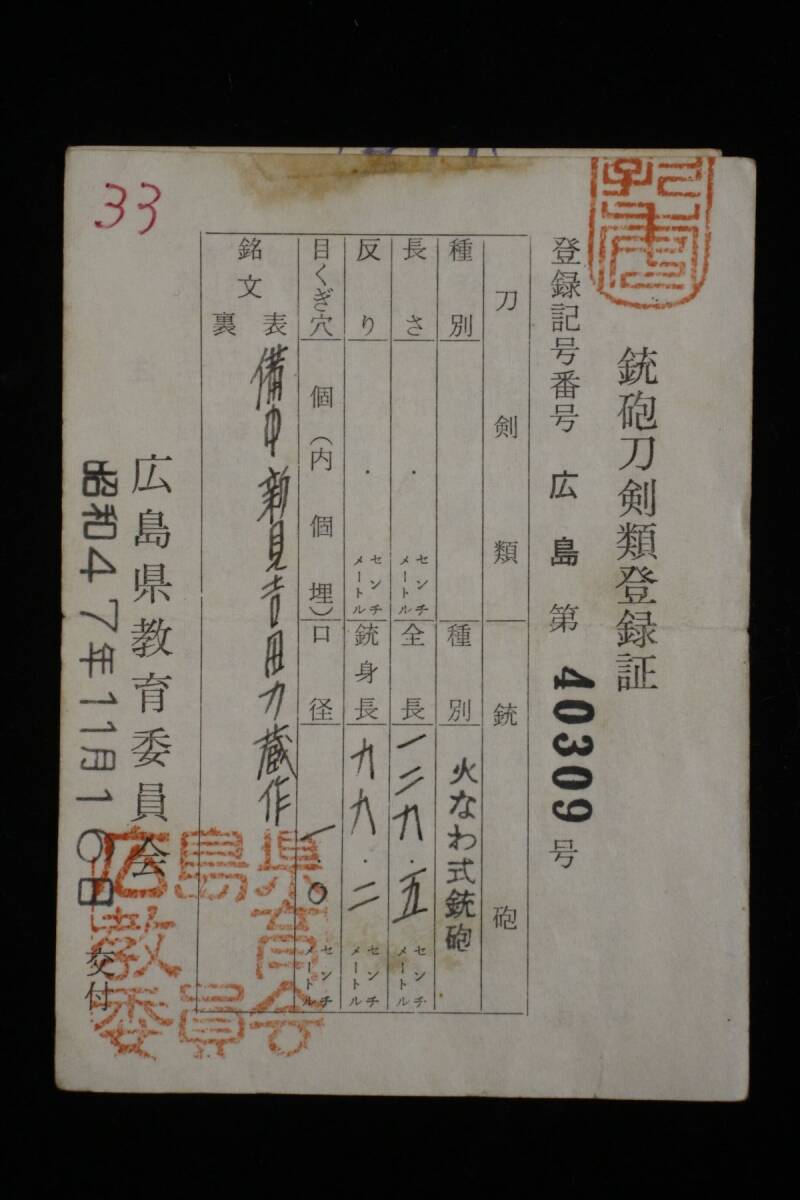 33
銃砲刀剣類登録証
登録記号番号 広島 第 40309 号
刀剣類 銃砲
種別 種別 火なわ式銃砲
長さ ・ センチメートル 全長 一二九・五 センチメートル
反り ・ センチメートル 銃身長 九九・二 センチメートル
目くぎ穴 個（内 個埋） 口径 一・〇 センチメートル
銘文 表 備中新見吉田力蔵作
裏
広島県教育委員会
昭和47年11月10日 交付
広島県
教育
委員会